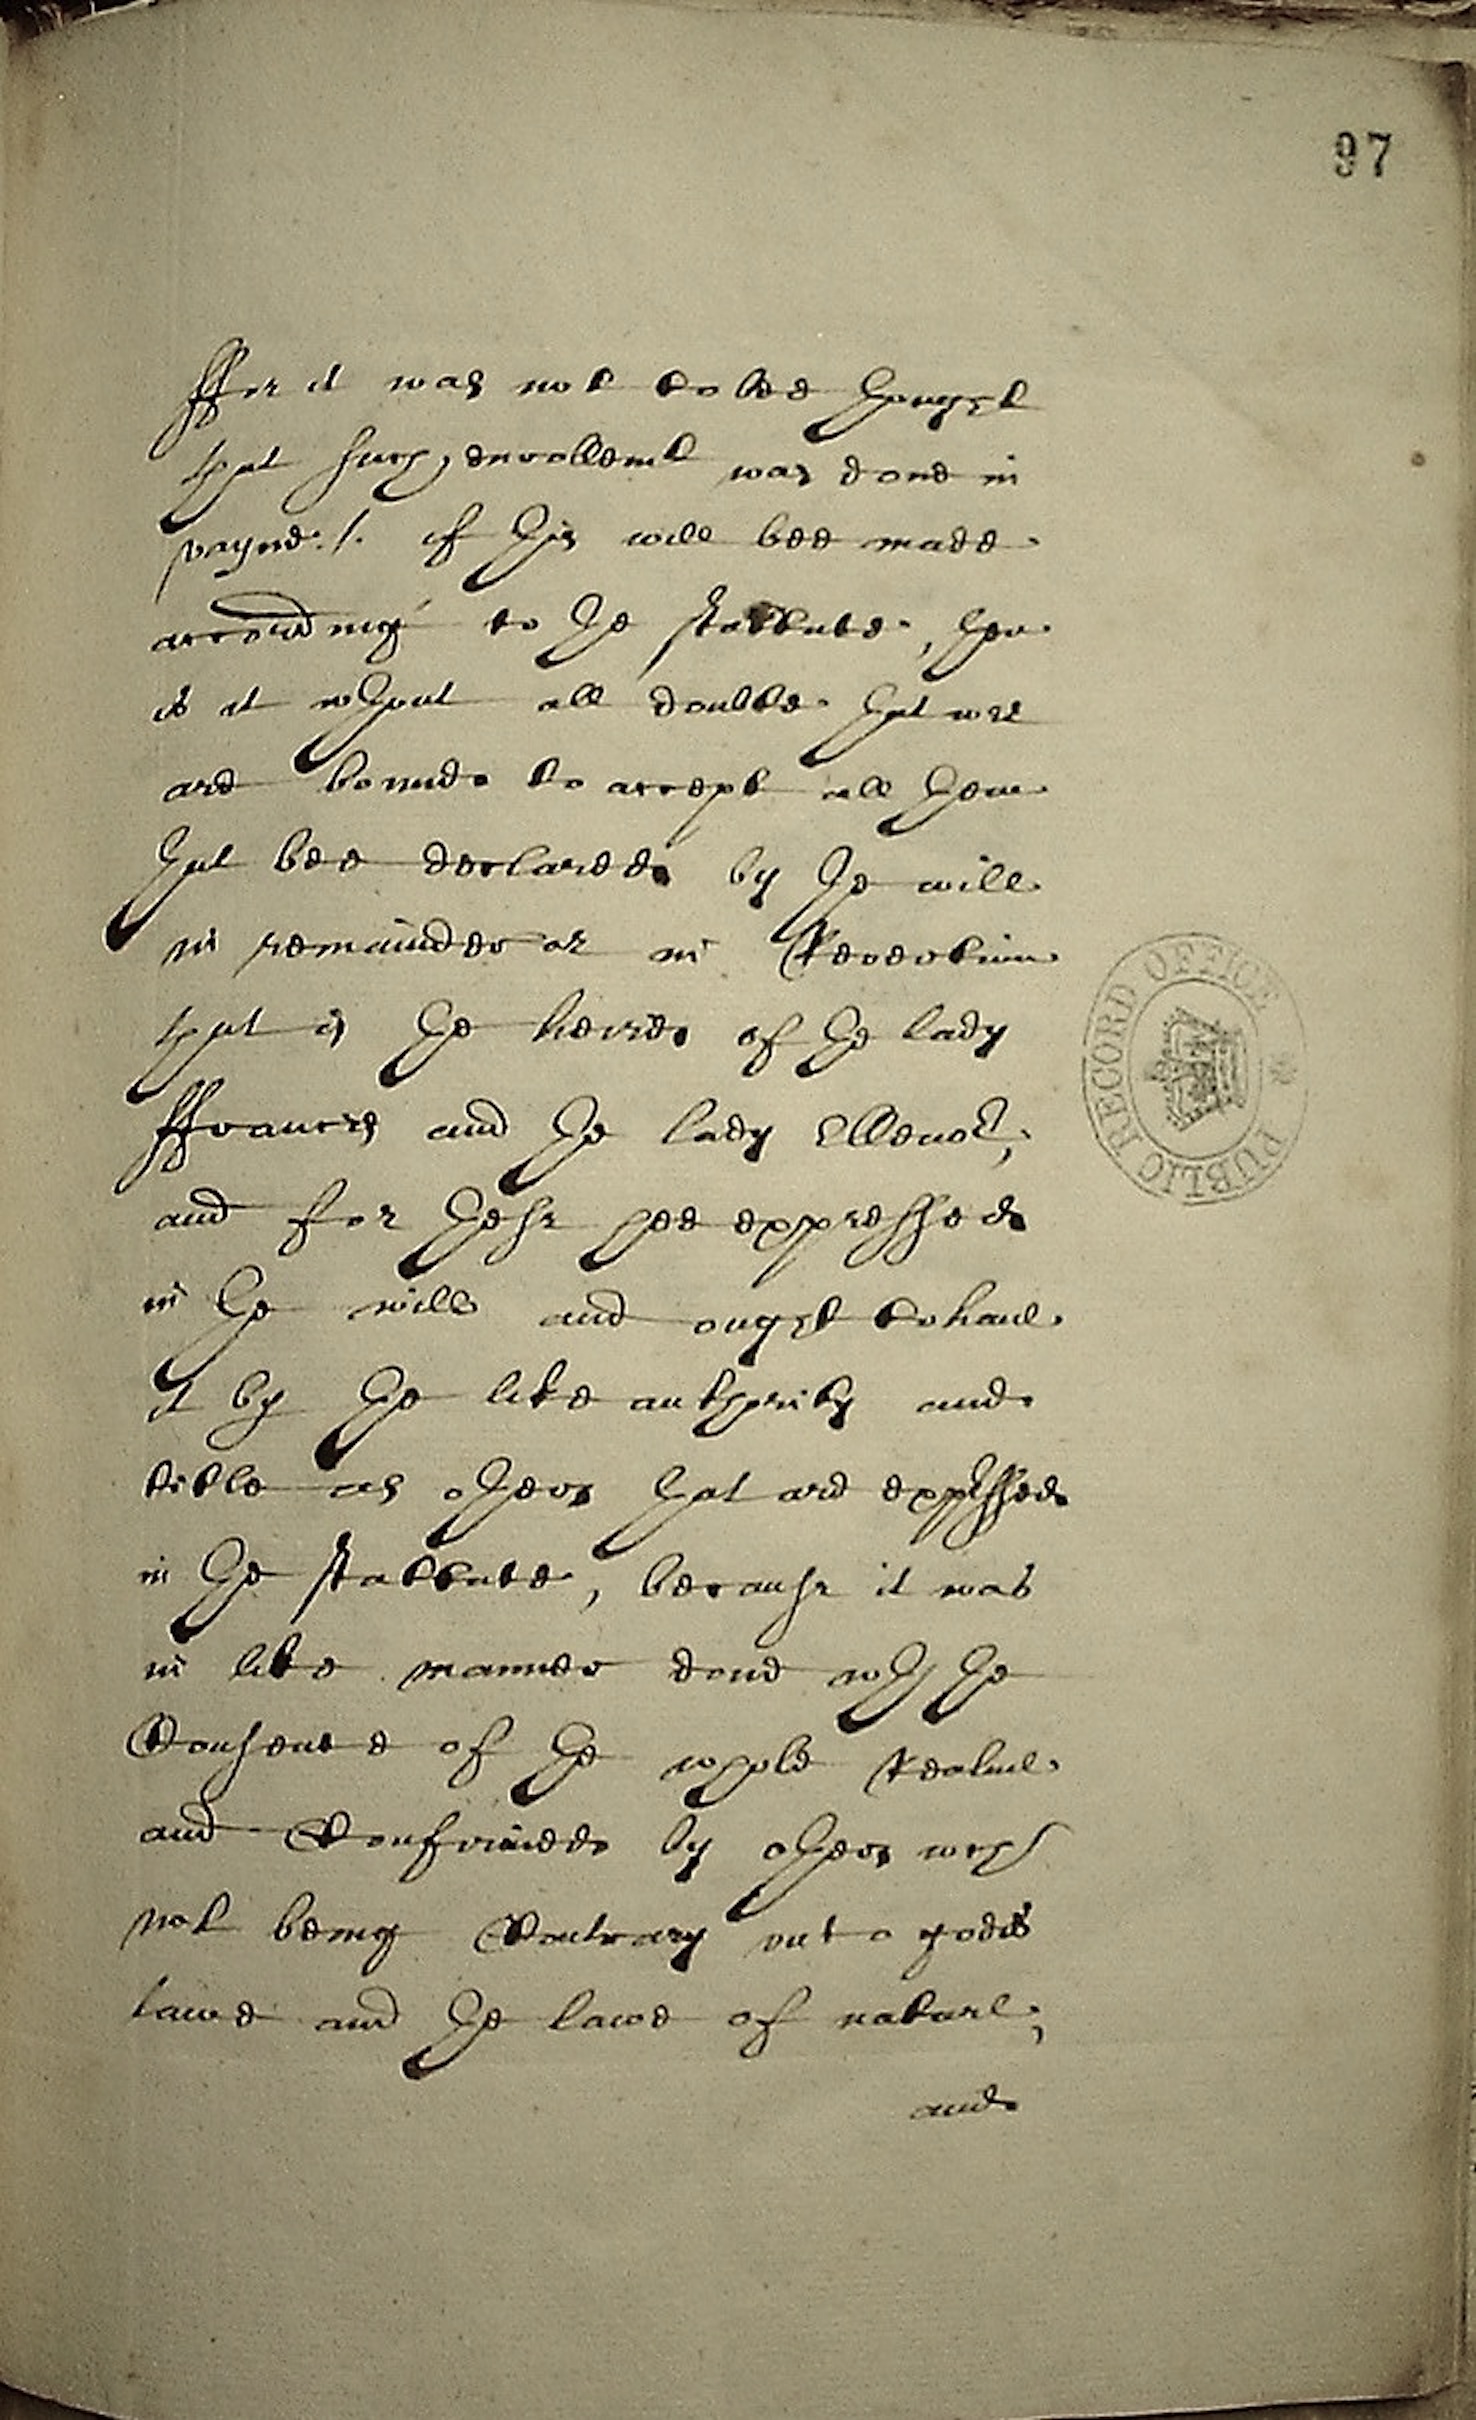 97
ffor it was not to bee thought
that such enrollemt was done in
vayne./. if this will bee made
according to the stattute, then
is it wthout all doubte that wee
are bounde to accept all them
that bee declared by the will
in remainder or in Revertion
that is the heires of the lady
ffrancis and the lady Ellenor,
and for these bee expressed
in the will and ought to haue
it by the like authority and
title as others that are expressed
in the stattute, because it was
in like manner done wth the
Consente of the whole Realme
and Confirmed by others wch
not being Contrary vnto godes
lawe and the lawe of nature;
and
PUBLIC RECORD OFFICE